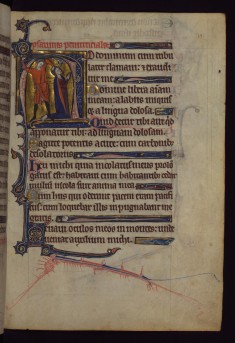 Ad dominum cum tribu
larer clamaui: & exaudi
uit me
Domine libera anim
meam a labiis iniquis
& a lingua dolosa.
Quid detur tibi aut quid
apponatur tibi: ad linguam dolosam.
Sagitte potentis acute: cum carbonib;
desolatoriis
Heu michi quia incolatus meus prolo
gatus est: habitaui cum habitantib; cedar
multum incola fuit anima mea
Cum hiis qui oderunt pacem eram pacifi
cus: cum loquebar illis inpugnabant me
gratis.
Leuaui oculos meos in montes: unde
ueniet auxilium michi.